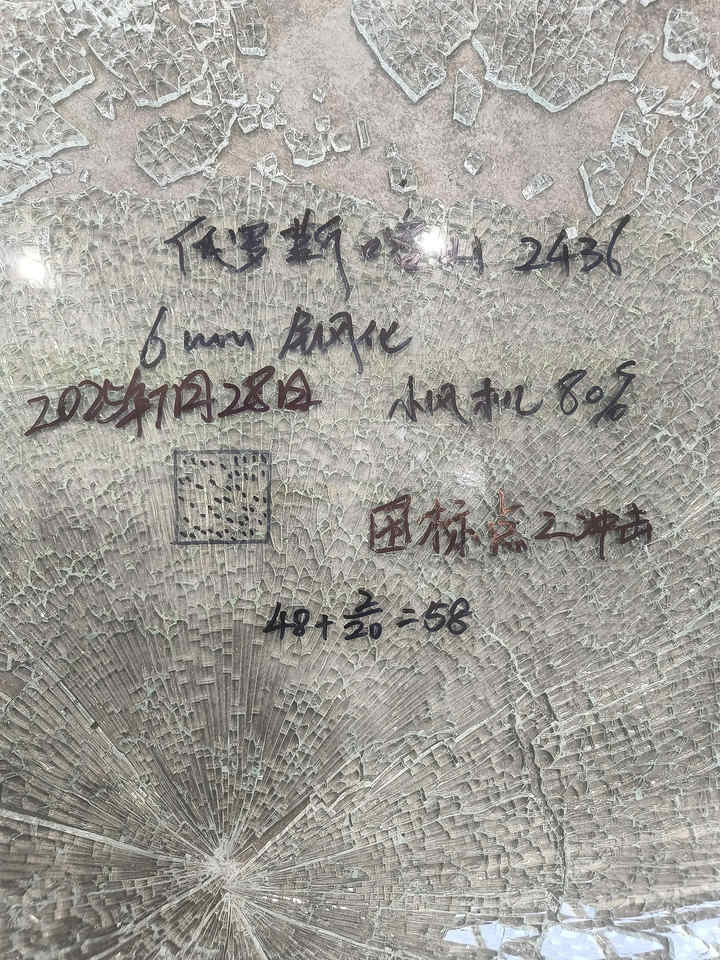 俄罗斯喀山 2436
6mm 钢化
2025年7月28日 小风机 80%
国标点 冲击
48+2/20=58